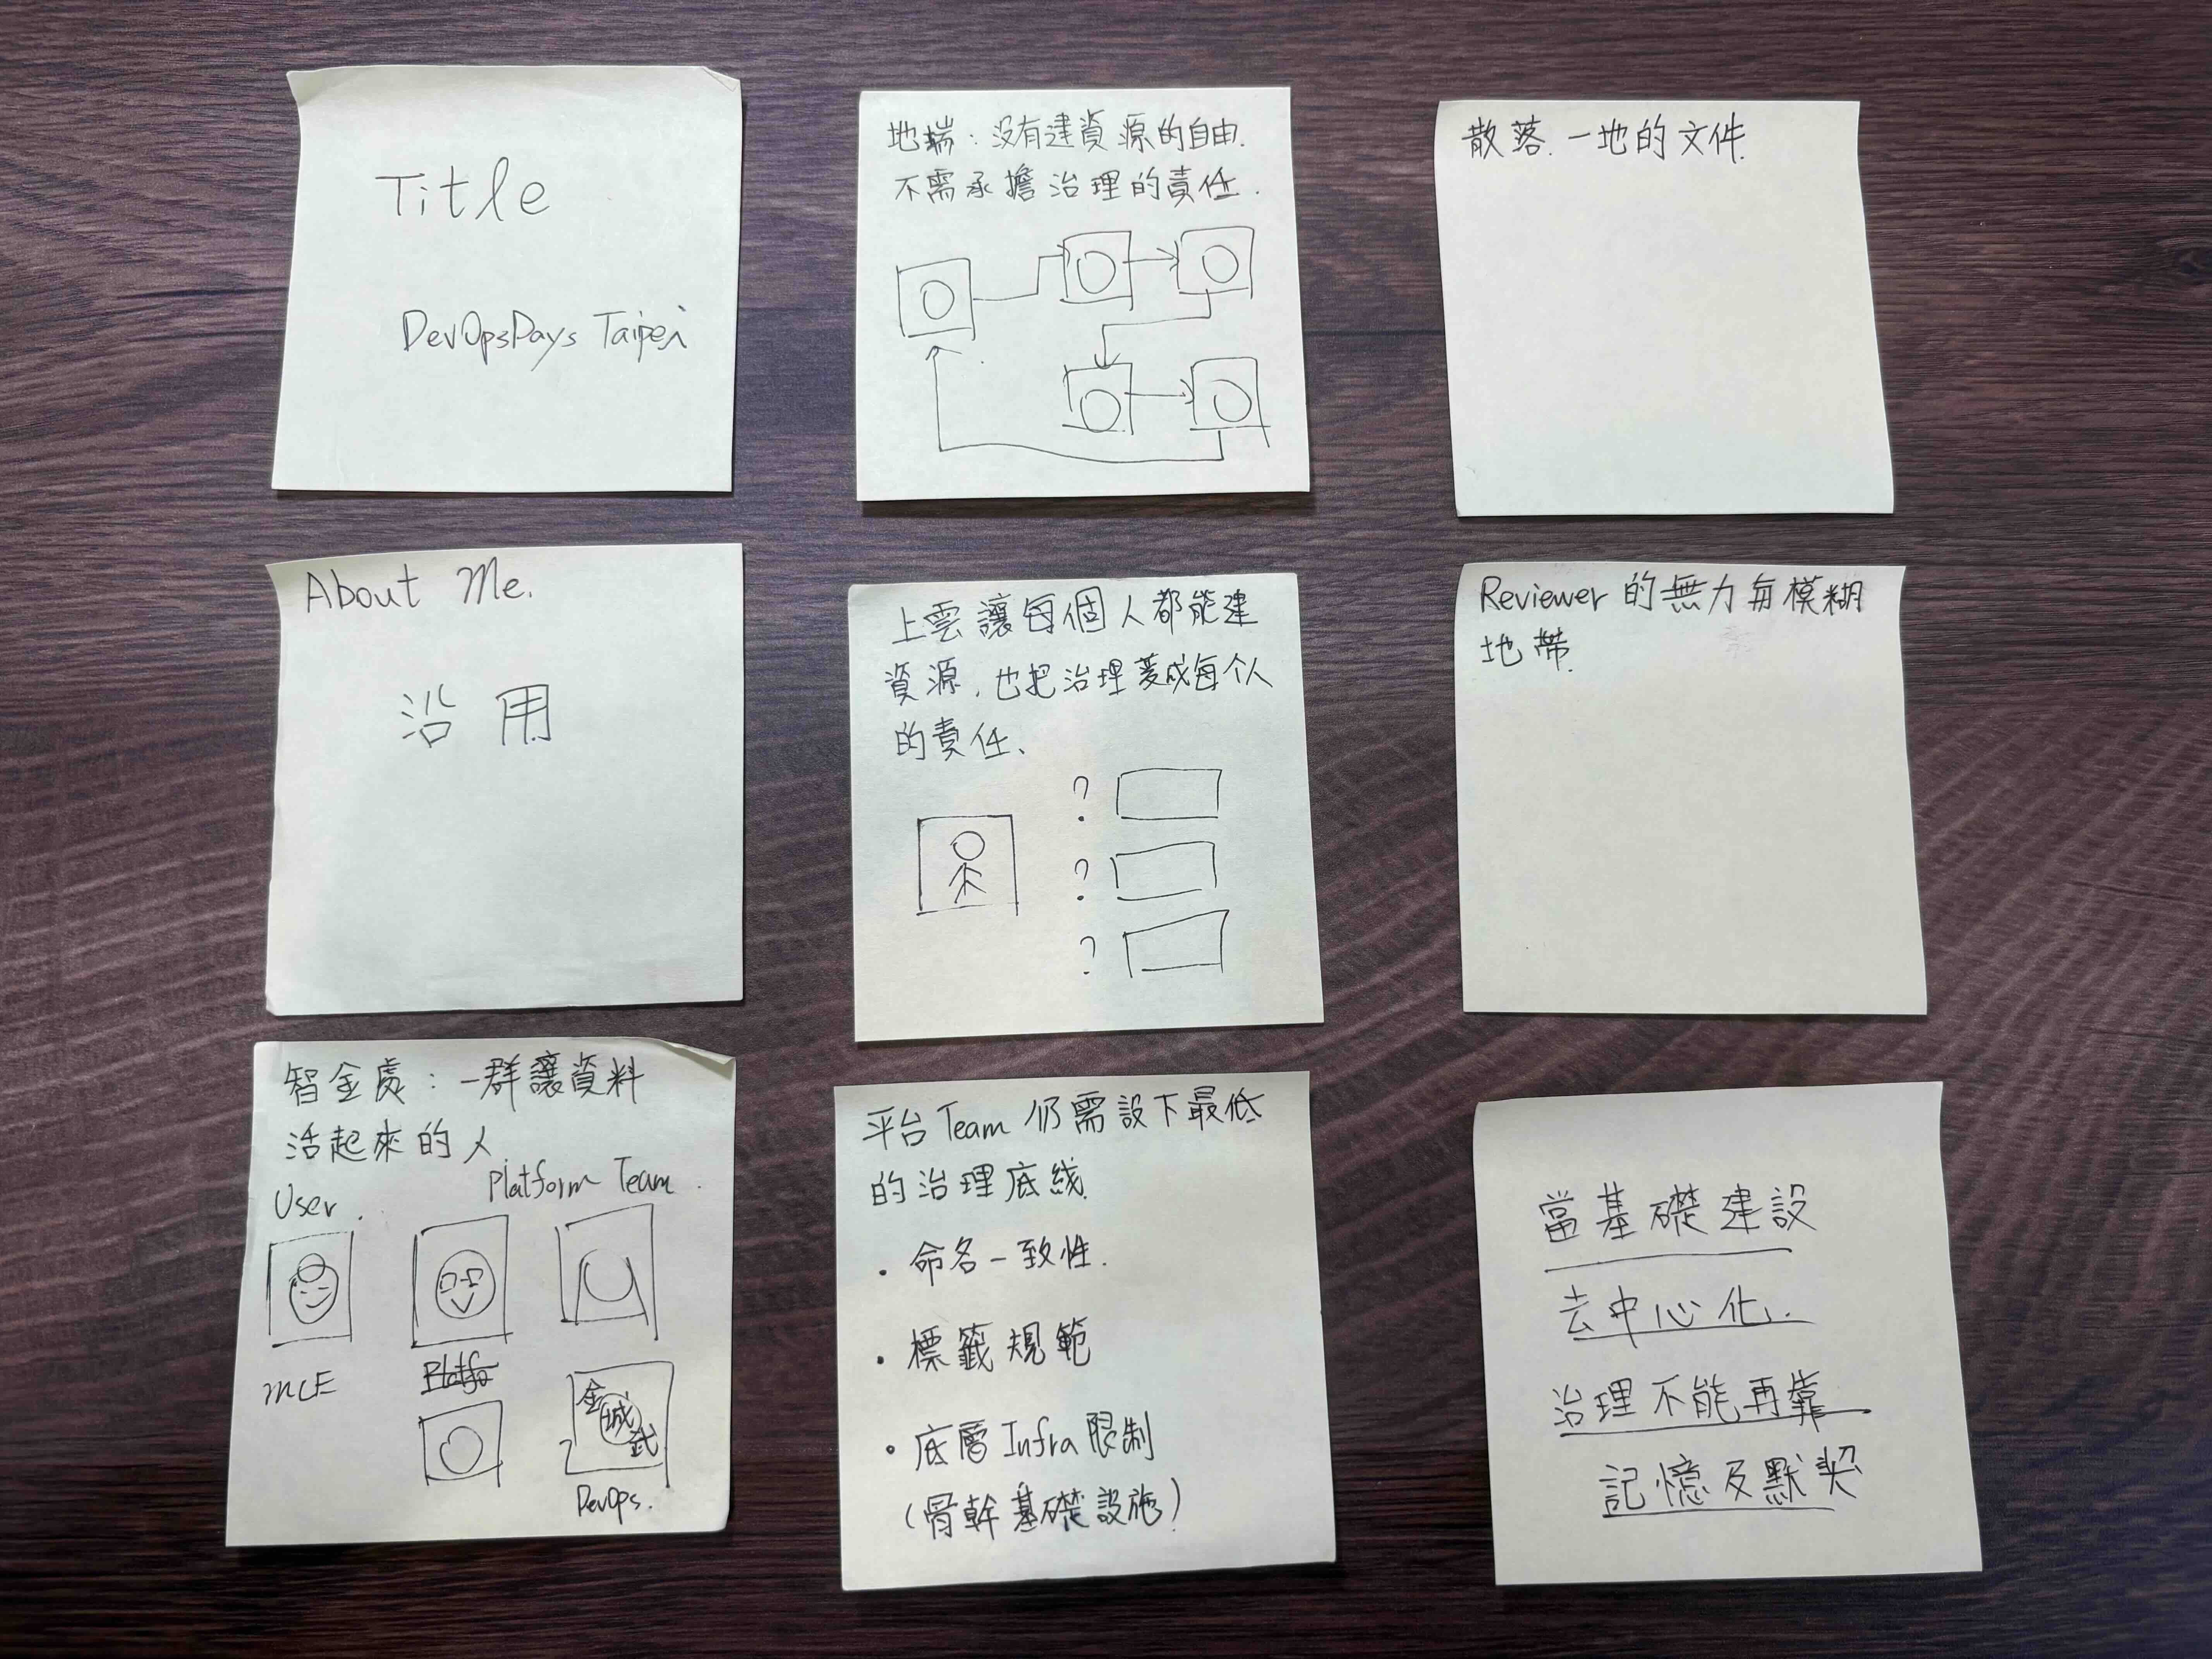 Title
DevOpsDays Taipei
About Me.
沿用
智金處：一群讓資料
活起來的人
User.
Platform Team.
MLE
Platfo
金城武
DevOps.
地端：沒有建資源的自由.
不需承擔治理的責任.
上雲讓每個人都能建
資源，也把治理變成每个人
的責任、
?
?
?
平台Team仍需設下最低
的治理底線.
• 命名一致性.
• 標籤規範
• 底層Infra限制
（骨幹基礎設施）
散落一地的文件.
Reviewer的無力與模糊
地帶.
當基礎建設
去中心化..
治理不能再靠
記憶及默契